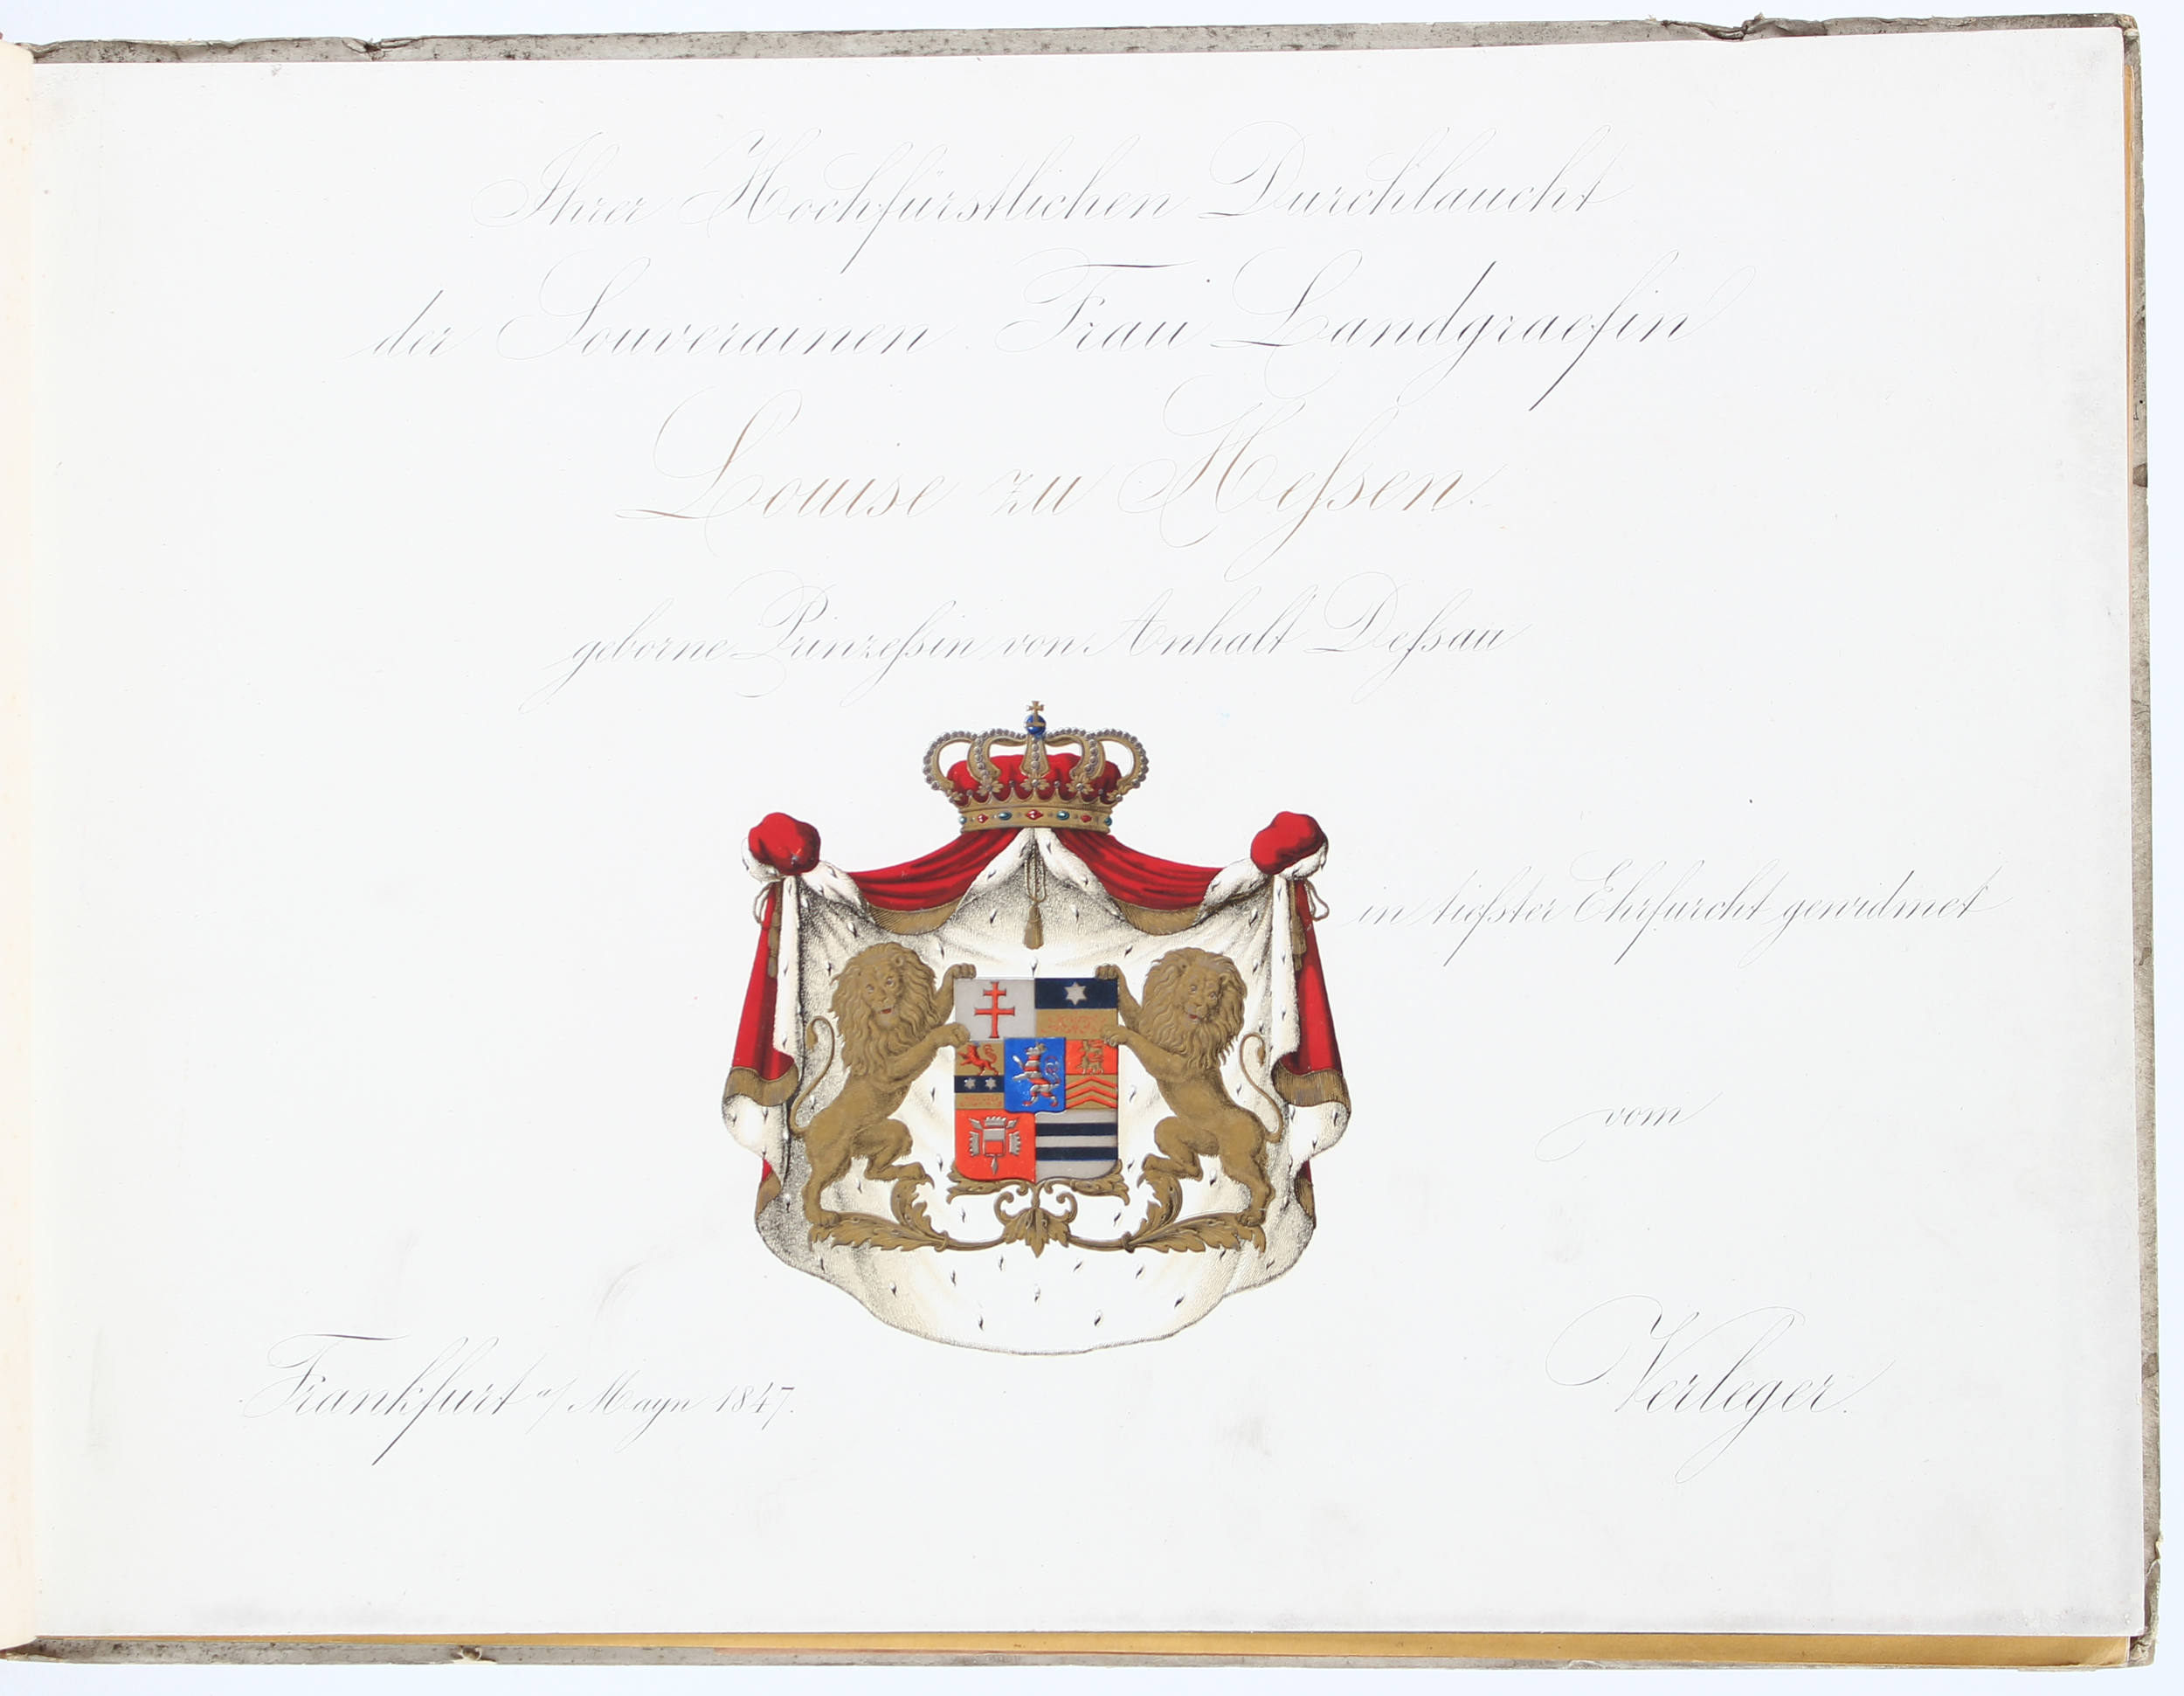 Ihrer Hochfürstlichen Durchlaucht
der Souverainen Frau Landgraefin
Louise zu Heſsen.
geborne Prinzeſsin von Anhalt Deſsau
in tiefster Ehrfurcht gewidmet
vom
Verleger.
Frankfurt a/ Mayn 1847.